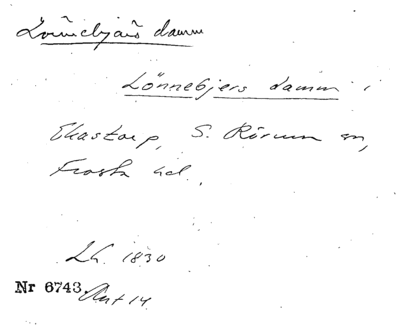 Lönnebjärs damm
Lönnebjers damm i
Ekastorp, S. Rörum sn,
Frosta hd.
Lh. 1830
Nr 6743. Akt 14